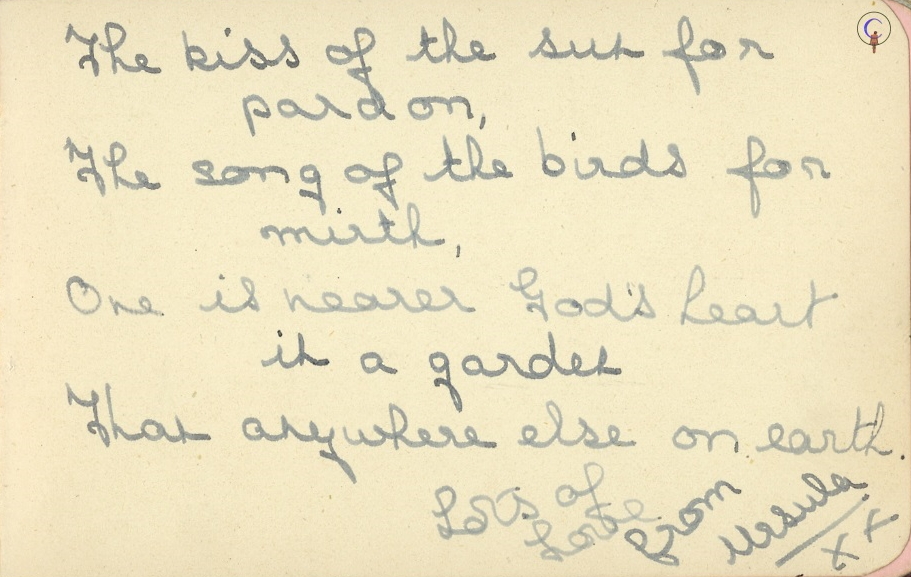 The kiss of the sun for
pardon,
The song of the birds for
mirth,
One is nearer God's heart
in a garden
Than anywhere else on earth.
Lots of
Love from
Ursula
xx